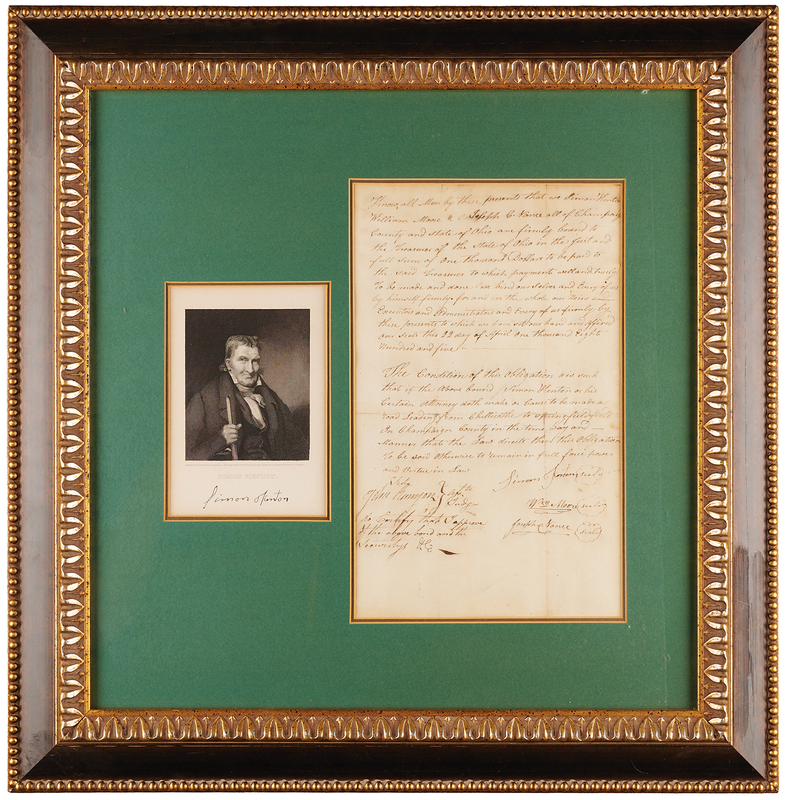 SIMON KENTON.
Simon Kenton
Know all Men by these presents that we Simon Kenton
William Moore & Joseph C. Vance all of Champaign
County and state of Ohio are firmly bound to
the Treasurer of the State of Ohio in the just and
full sum of one thousand Dollars to be paid to
the said Treasurer to which payments well and truly
To be made and done we bind our selves and Every of us
by himself firmly for and in the whole our Heirs
Executors and Administrators and Every of us firmly by
these presents to which we have set our hand and affixed
our seals this 22 day of April one thousand Eight
Hundred and five
The Condition of this Obligation are such
that if the above bound Simon Kenton or his
Certain Attorney doth make or Cause to be made a
road Leading from Chillicothe to
In Champaign County in the time way and
Manner that the Law directs then this Obligation
To be void Otherwise to remain in full force power
and Virtue in Law
Simon Kenton
Wm Moore
Joseph C Vance
seal
Judge
to Certify that I approve
of the above bond and the
Security &c